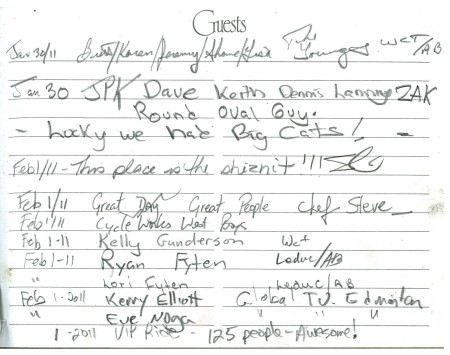 Guests
Jan 30/11 Brett/Karen/Jeremy/Shane/ The Youngs WCT/AB
Jan 30 JPK Dave Keith Dennis Lanny ZAK
Round Oval Guy.
- Lucky we had Big Cats! -
Feb 1/11 - This place is the shiznit!!!
Feb 1/11 Great Day Great People Chef Steve
Feb 1/11 Cycle Works West Boys
Feb 1-11 Kelly Gunderson Wct
Feb 1-11 Ryan Fyten Leduc/AB
" Lori Fyten Leduc/AB
Feb 1-2011 Kerry Elliott Global TV. Edmonton
" Eve Noga " "
1-2011 VIP Ride - 125 people - Awesome!